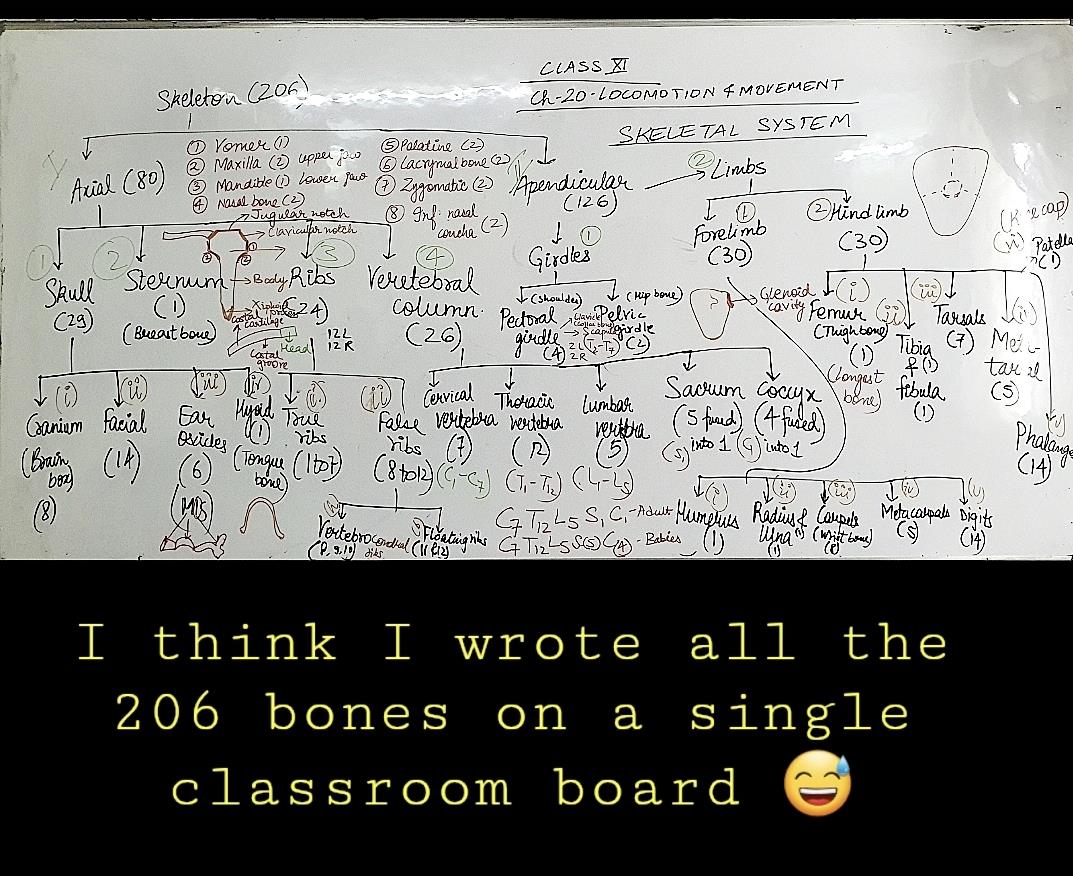 CLASS XI
Ch-20-LOCOMOTION & MOVEMENT
SKELETAL SYSTEM
Skeleton (206)
Axial (80)
① Vomer (1)
② Maxilla (2) upper jaw
③ Mandible (1) Lower jaw
④ Nasal bone (2)
⑤ Palatine (2)
⑥ Lacrymal bone (2)
⑦ Zygomatic (2)
⑧ Inf: nasal
concha (2)
Apendicular
(126)
② Limbs
① Girdles
① Forelimb
(30)
② Hind limb
(30)
① Skull
(29)
② Sternum
(1)
(Breast bone)
Jugular notch
Clavicular notch
Body
Xiphoid process
③ Ribs
(24)
12 L
12 R
Costal
cartilage
Head
Costal
groove
④ Veretebral
column.
(26)
(Shoulder)
Pectoral
girdle
(4)
Clavicle
(Collar bone)
Scapula
2L (T2-T7)
2R
(Hip bone)
Pelvic
girdle
(2)
Glenoid
cavity
(i) Femur
(Thigh bone)
(1)
(Longest
bone)
(ii) Tibia
& (1)
fibula
(1)
(iii) Tarsals
(7)
(iv) Meta-
tarsal
(5)
(v) Phalange
(14)
(Knee cap)
(vi) Patella
(1)
(i) Cranium
(Brain
box)
(8)
(ii) Facial
(14)
(iii) Ear
Oscicles
(6)
MIS
(iv) Hyoid
(1)
(Tongue
bone)
(i) True
ribs
(1 to 7)
(ii) False
ribs
(8 to 12)
Vertebrochondral
ribs
(8, 9, 10)
Floating ribs
(11 & 12)
Cervical
vertebra
(7)
(C1-C7)
Thoracic
vertebra
(12)
(T1-T12)
Lumbar
vertebra
(5)
(L1-L5)
Sacrum
(5 fused)
(S) into 1
Coccyx
(4 fused)
(C) into 1
C7 T12 L5 S1 C1 - Adult
C7 T12 L5 S(5) C(4) - Babies
(i) Humerus
(1)
(ii) Radius &
Ulna (1)
(1)
(iii) Carpels
(Wrist bone)
(8)
(iv) Metacarpals
(5)
(v) Digits
(14)
I think I wrote all the
206 bones on a single
classroom board 😅